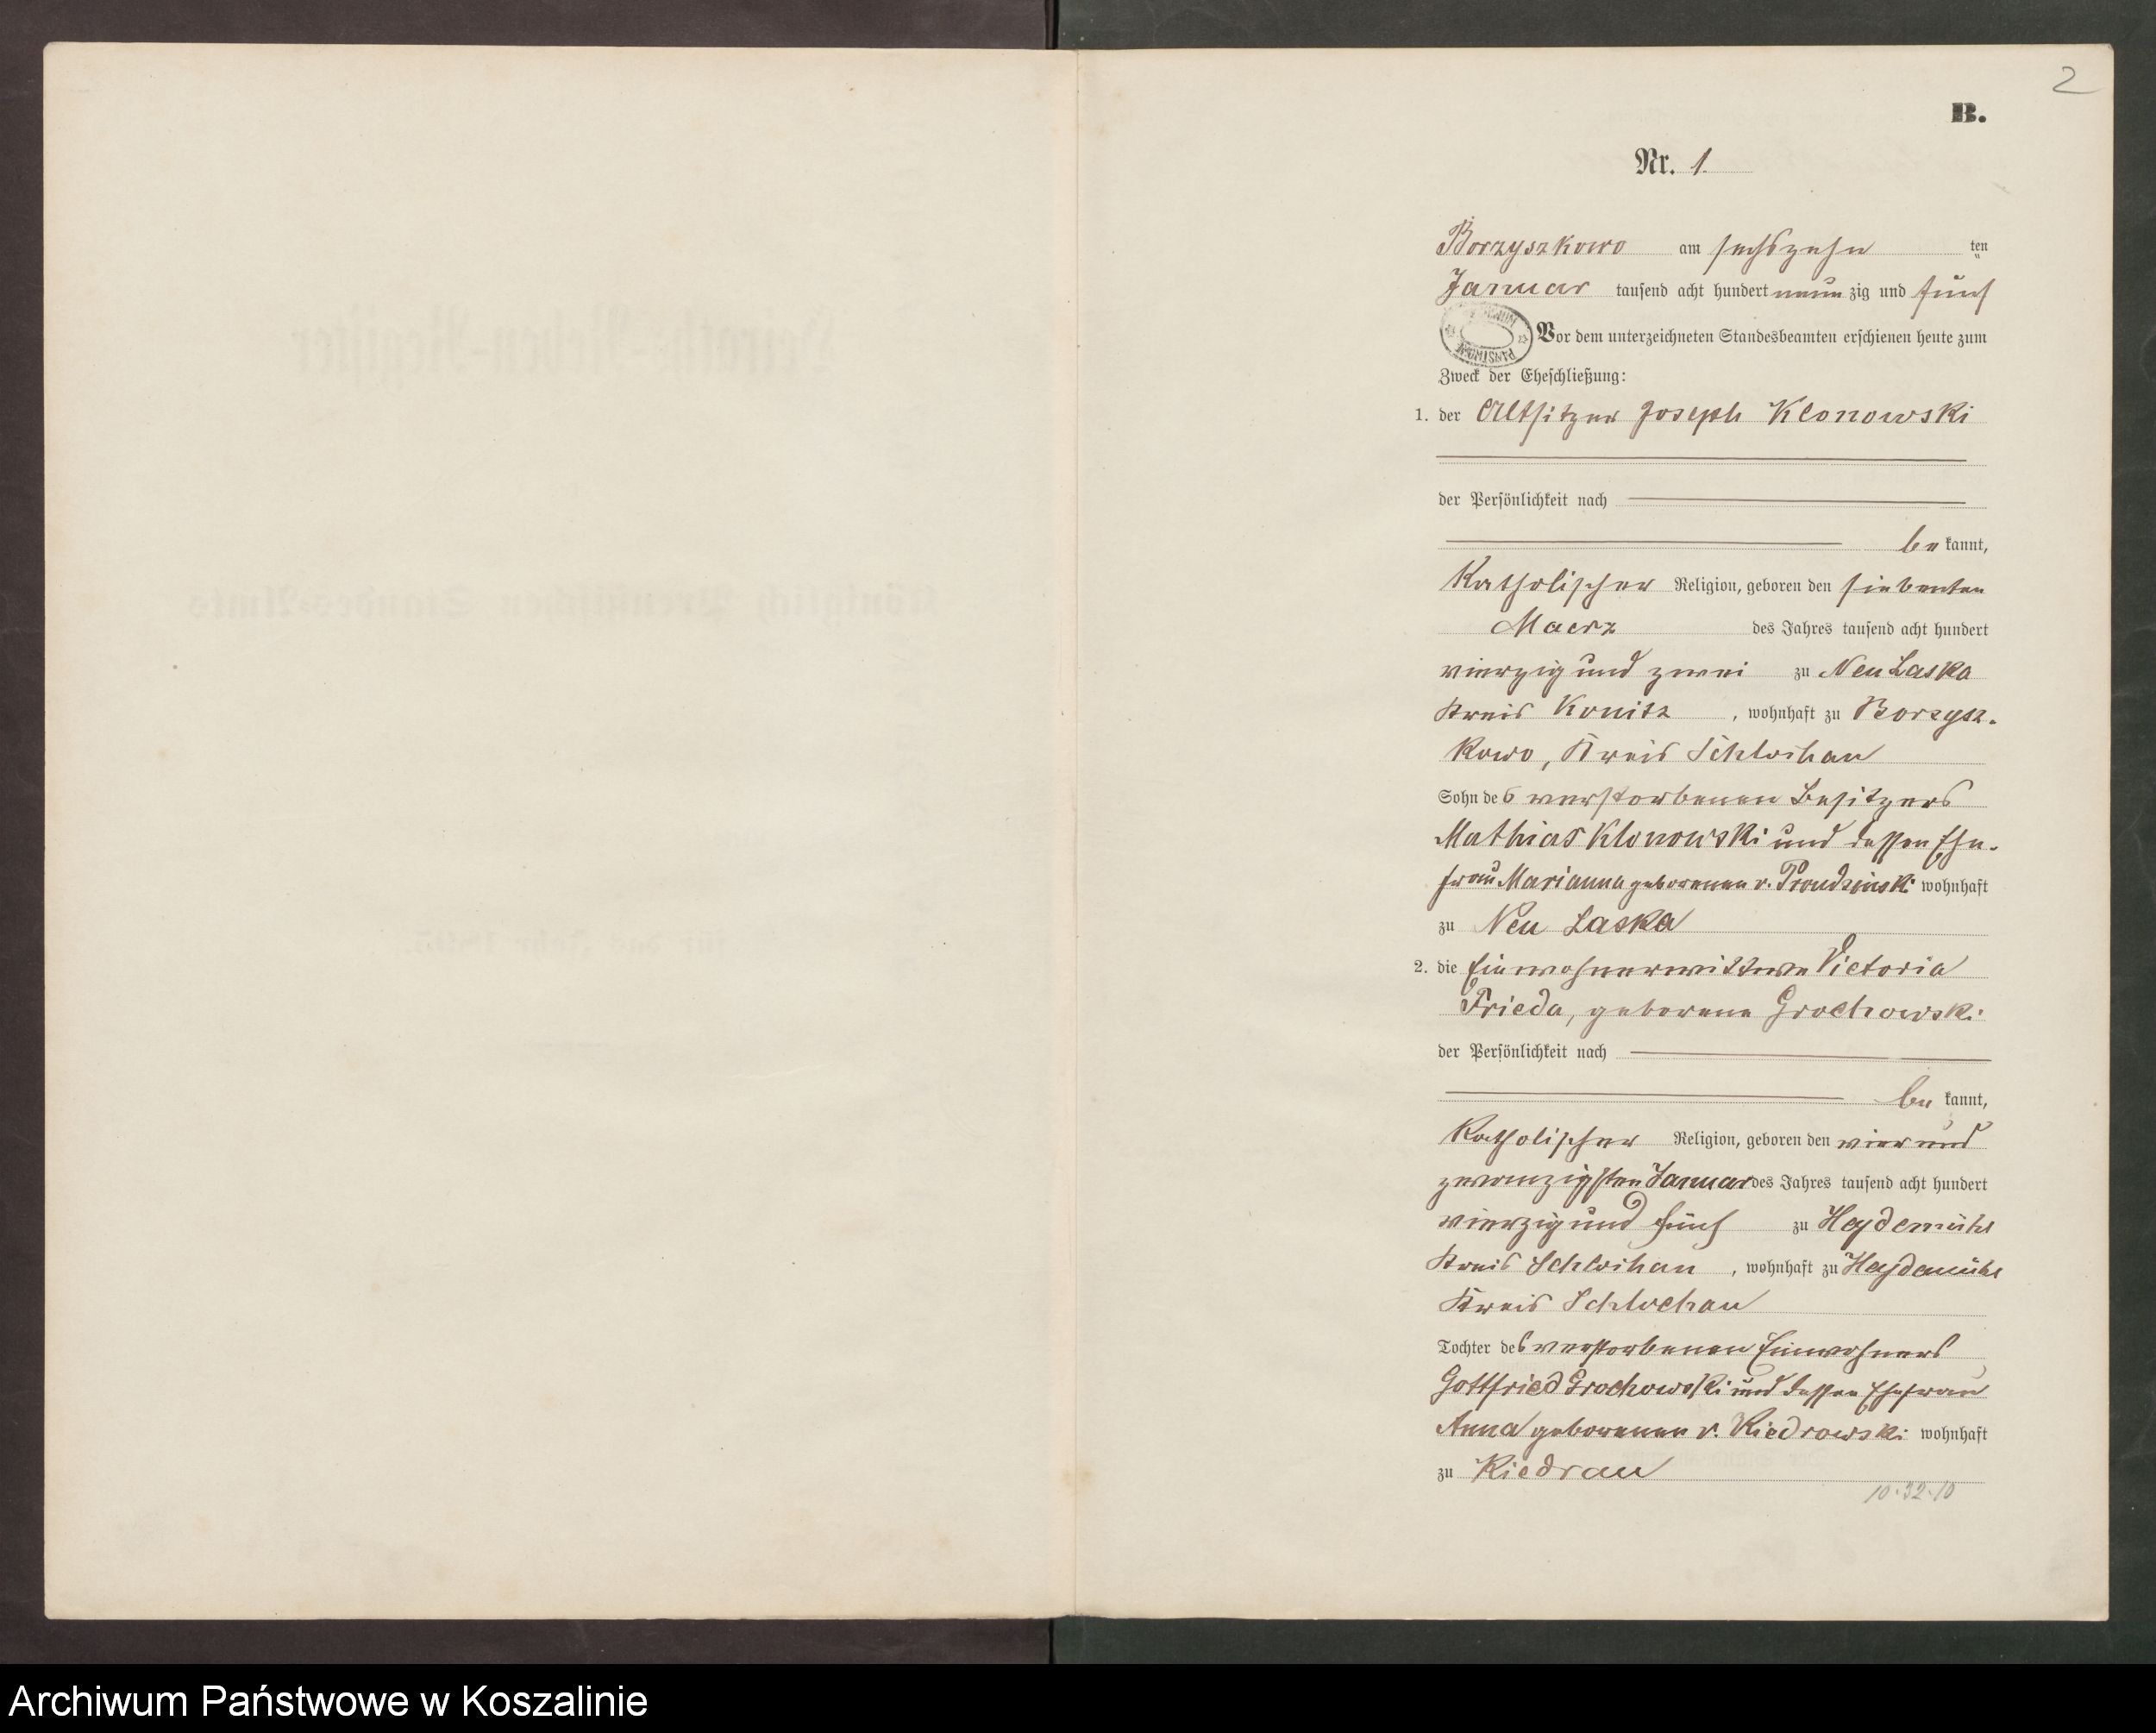 2
B.
Nr. 1.
Borzyszkowo am sechszehn ten
Januar tausend acht hundert neun zig und fünf
Vor dem unterzeichneten Standesbeamten erschienen heute zum
Zweck der Eheschließung:
1. der Altsitzer Joseph Klonowski
der Persönlichkeit nach
be kannt,
Katholischer Religion, geboren den siebenten
Maerz des Jahres tausend acht hundert
vierzig und zwei zu Neu Laska
Kreis Konitz, wohnhaft zu Borzysz-
kowo, Kreis Schlochau
Sohn des verstorbenen Besitzers
Mathias Klonowski und dessen Ehe-
frau Marianna geborenen v. Prondzinski wohnhaft
zu Neu Laska
2. die Einwohnerwittwe Victoria
Frieda, geborene Grochowski
der Persönlichkeit nach
be kannt,
Katholischer Religion, geboren den vier und
zwanzigsten Januar des Jahres tausend acht hundert
vierzig und fünf zu Heydemühl
Kreis Schlochau, wohnhaft zu Heydemühl
Kreis Schlochau
Tochter des verstorbenen Einwohners
Gottfried Grochowski und dessen Ehefrau
Anna geborenen v. Kiedrowski wohnhaft
zu Kiedrau
10.32.10
Archiwum Państwowe w Koszalinie